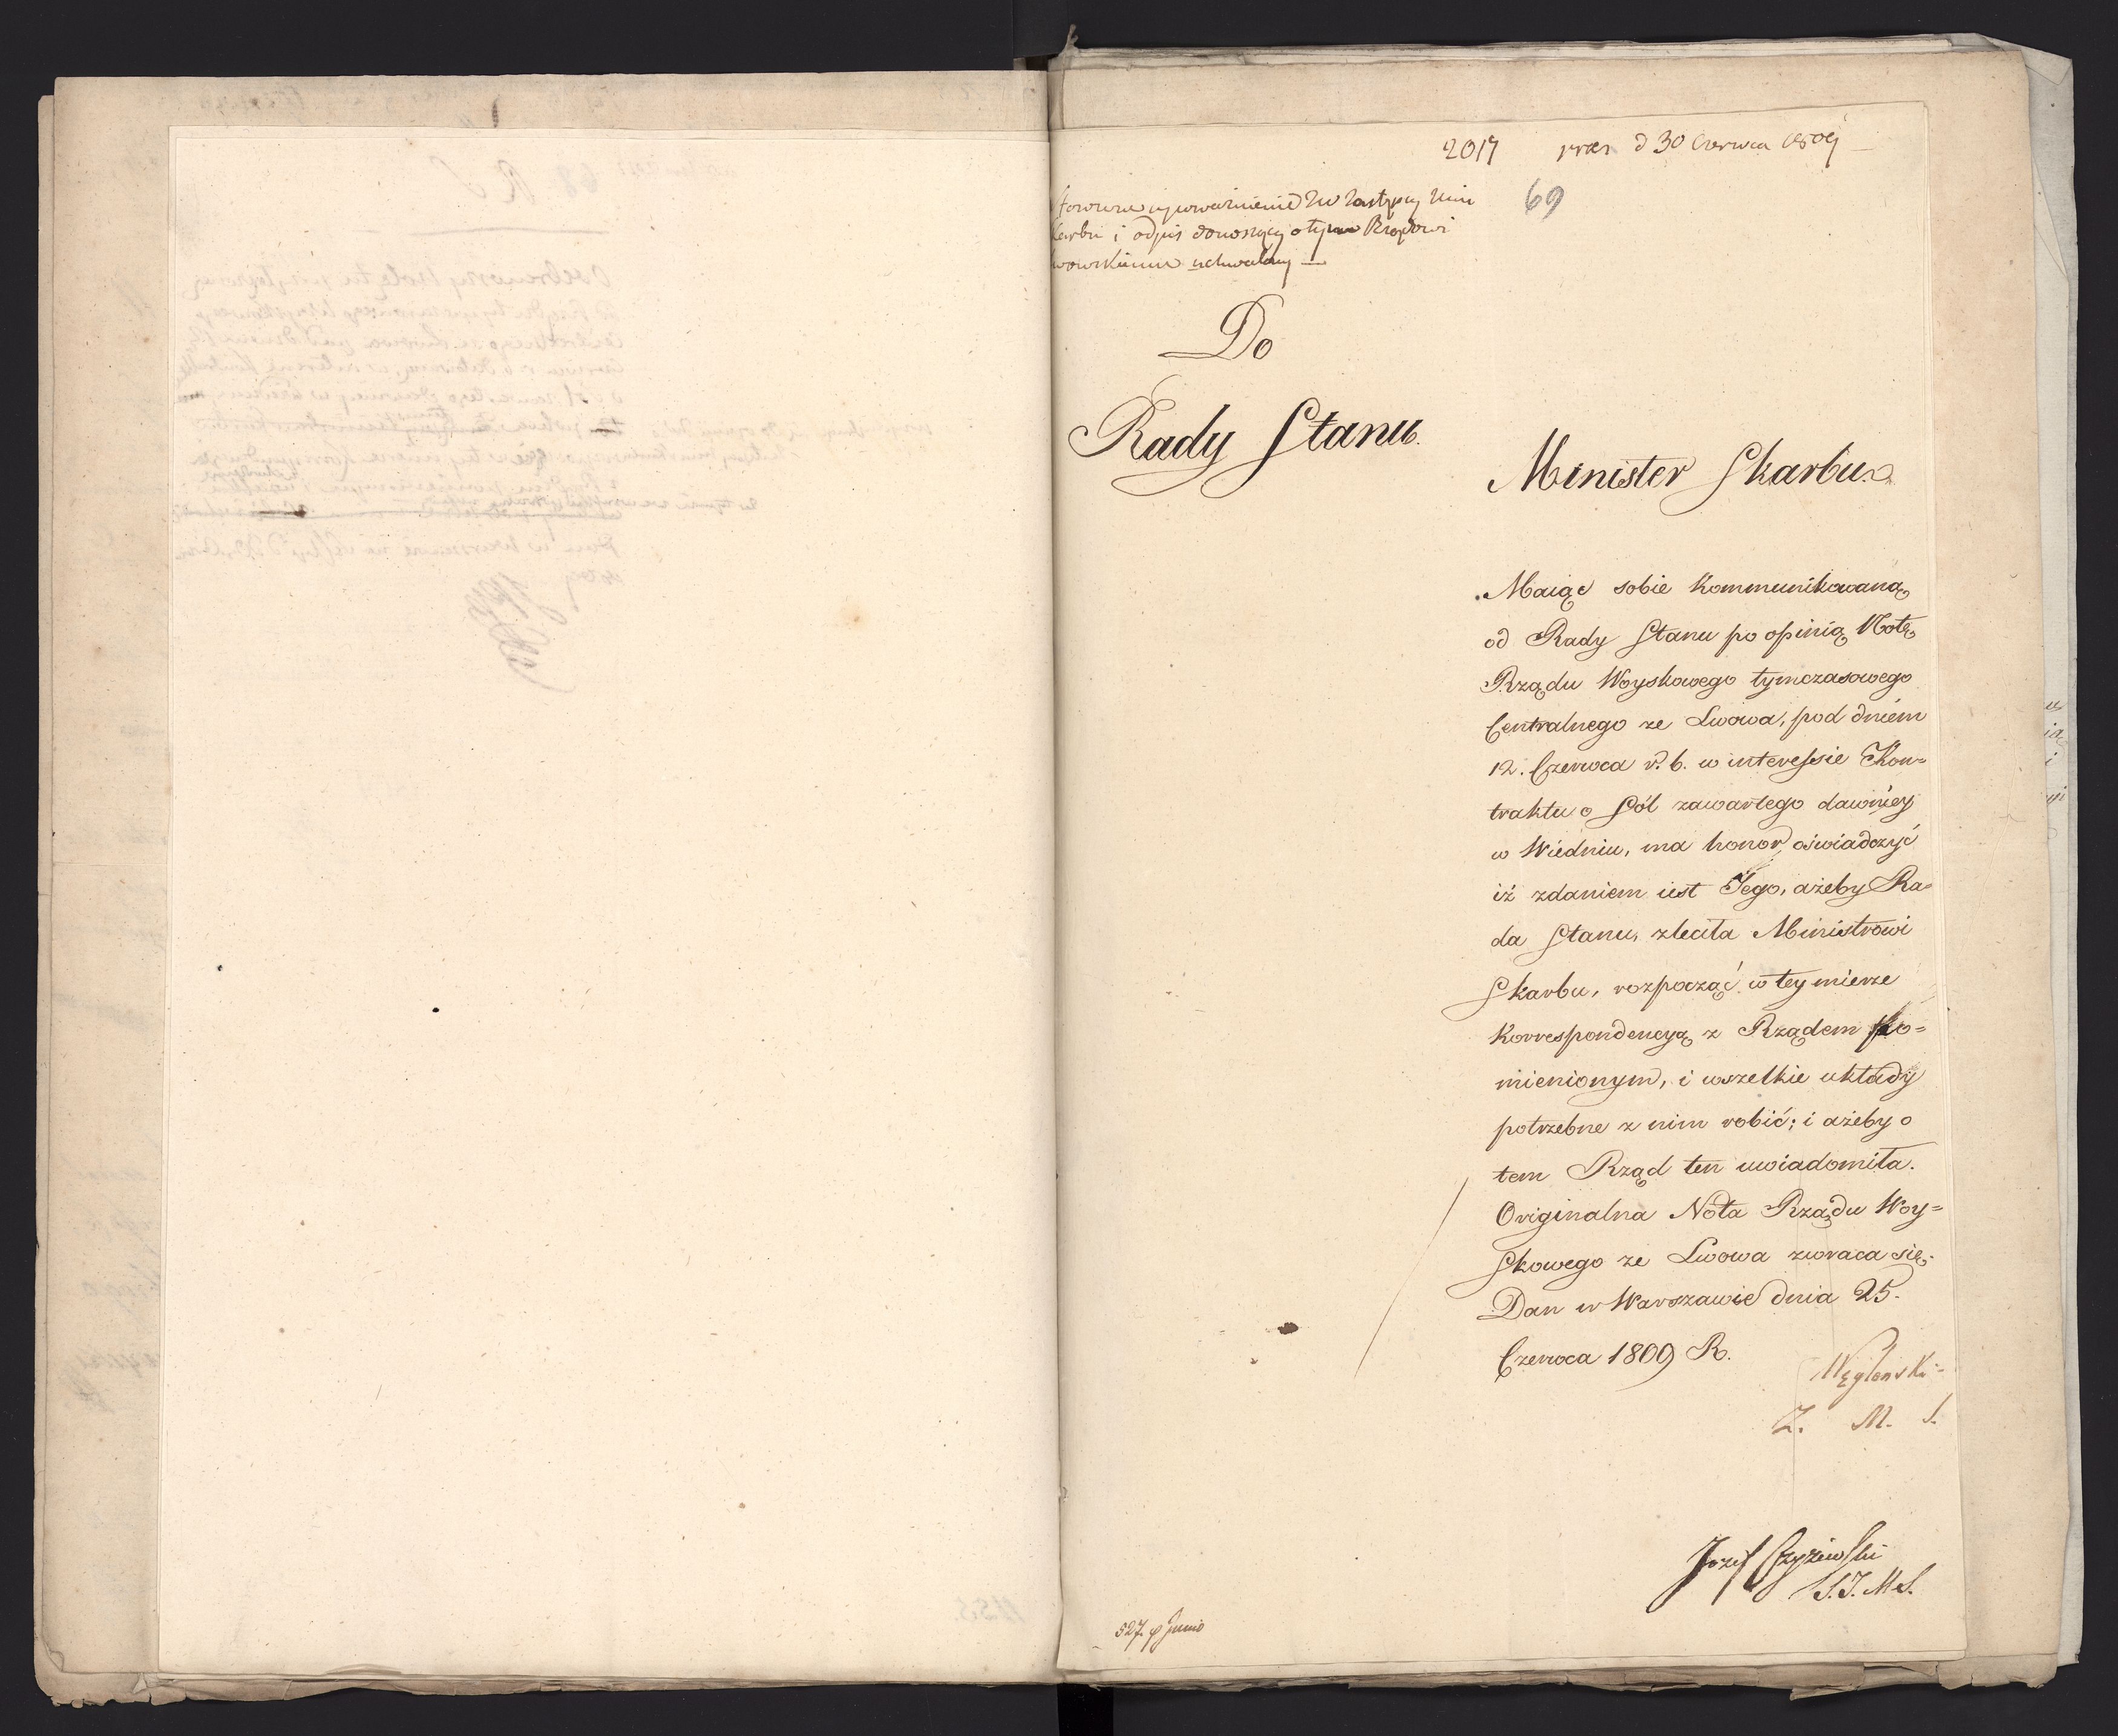 2017 prez d 30 Czerwca 1809
69
upoważnienie Zastępcy Min
Skarbu i odpis donoszący o tym Rządowi
Lwowskiemu uchwalony —
Do
Rady Stanu.
Minister Skarbu.
Maiąc sobie kommunikowaną
od Rady Stanu po opinią Notę
Rządu Woyskowego tymczasowego
Centralnego ze Lwowa, pod dniem
12. Czerwca r. b. w interessie Kon=
traktu o Sól zawartego dawniey
w Wiedniu, ma honor oświadczyć
iż zdaniem iest Jego, ażeby Ra=
da Stanu, zleciła Ministrowi
Skarbu, rozpocząć w tey mierze
korrespondencyą z Rządem po=
mienionym, i wszelkie układy
potrzebne z nim robić; i ażeby o
tem Rząd ten uwiadomiła.
Originalna Nota Rządu Woy=
skowego ze Lwowa zwraca się.
Dan w Warszawie dnia 25.
Czerwca 1809 R.
Węgleński
Z. M. S.
Jozef Czyżewski
S. J. M S.
527. Junio